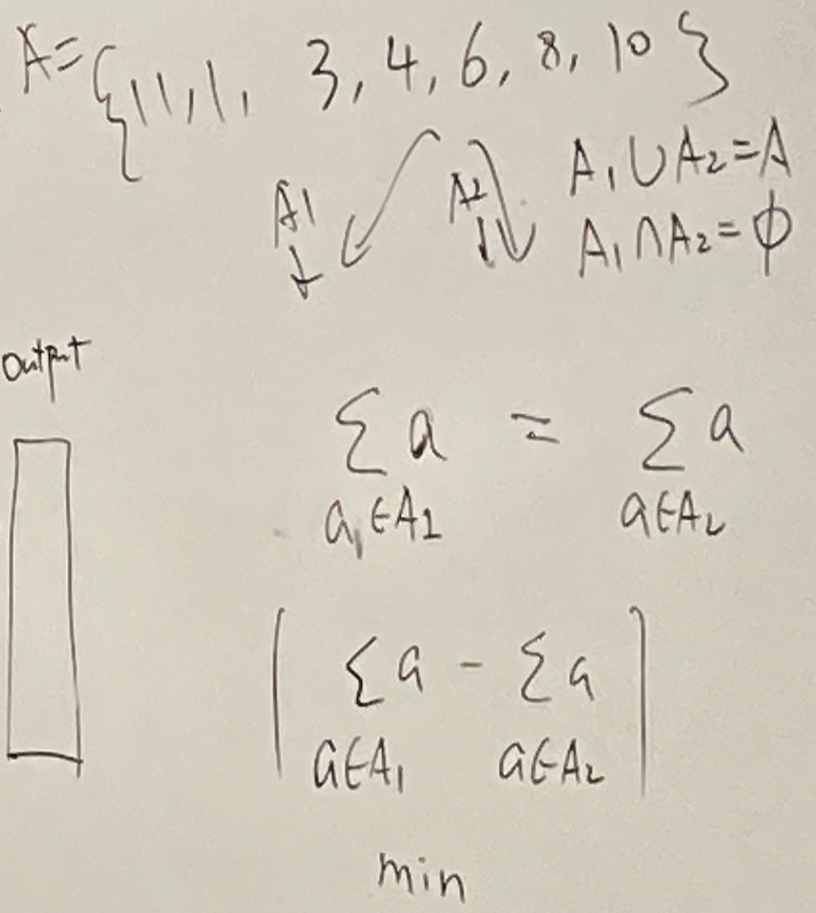 A={11,1, 3,4,6,8,10}
A1 A2 A₁∪A₂=A
A₁∩A₂=ϕ
output
Σa = Σa
a₁∈A1 a∈A₂
| Σa - Σa |
a∈A₁ a∈A₂
min